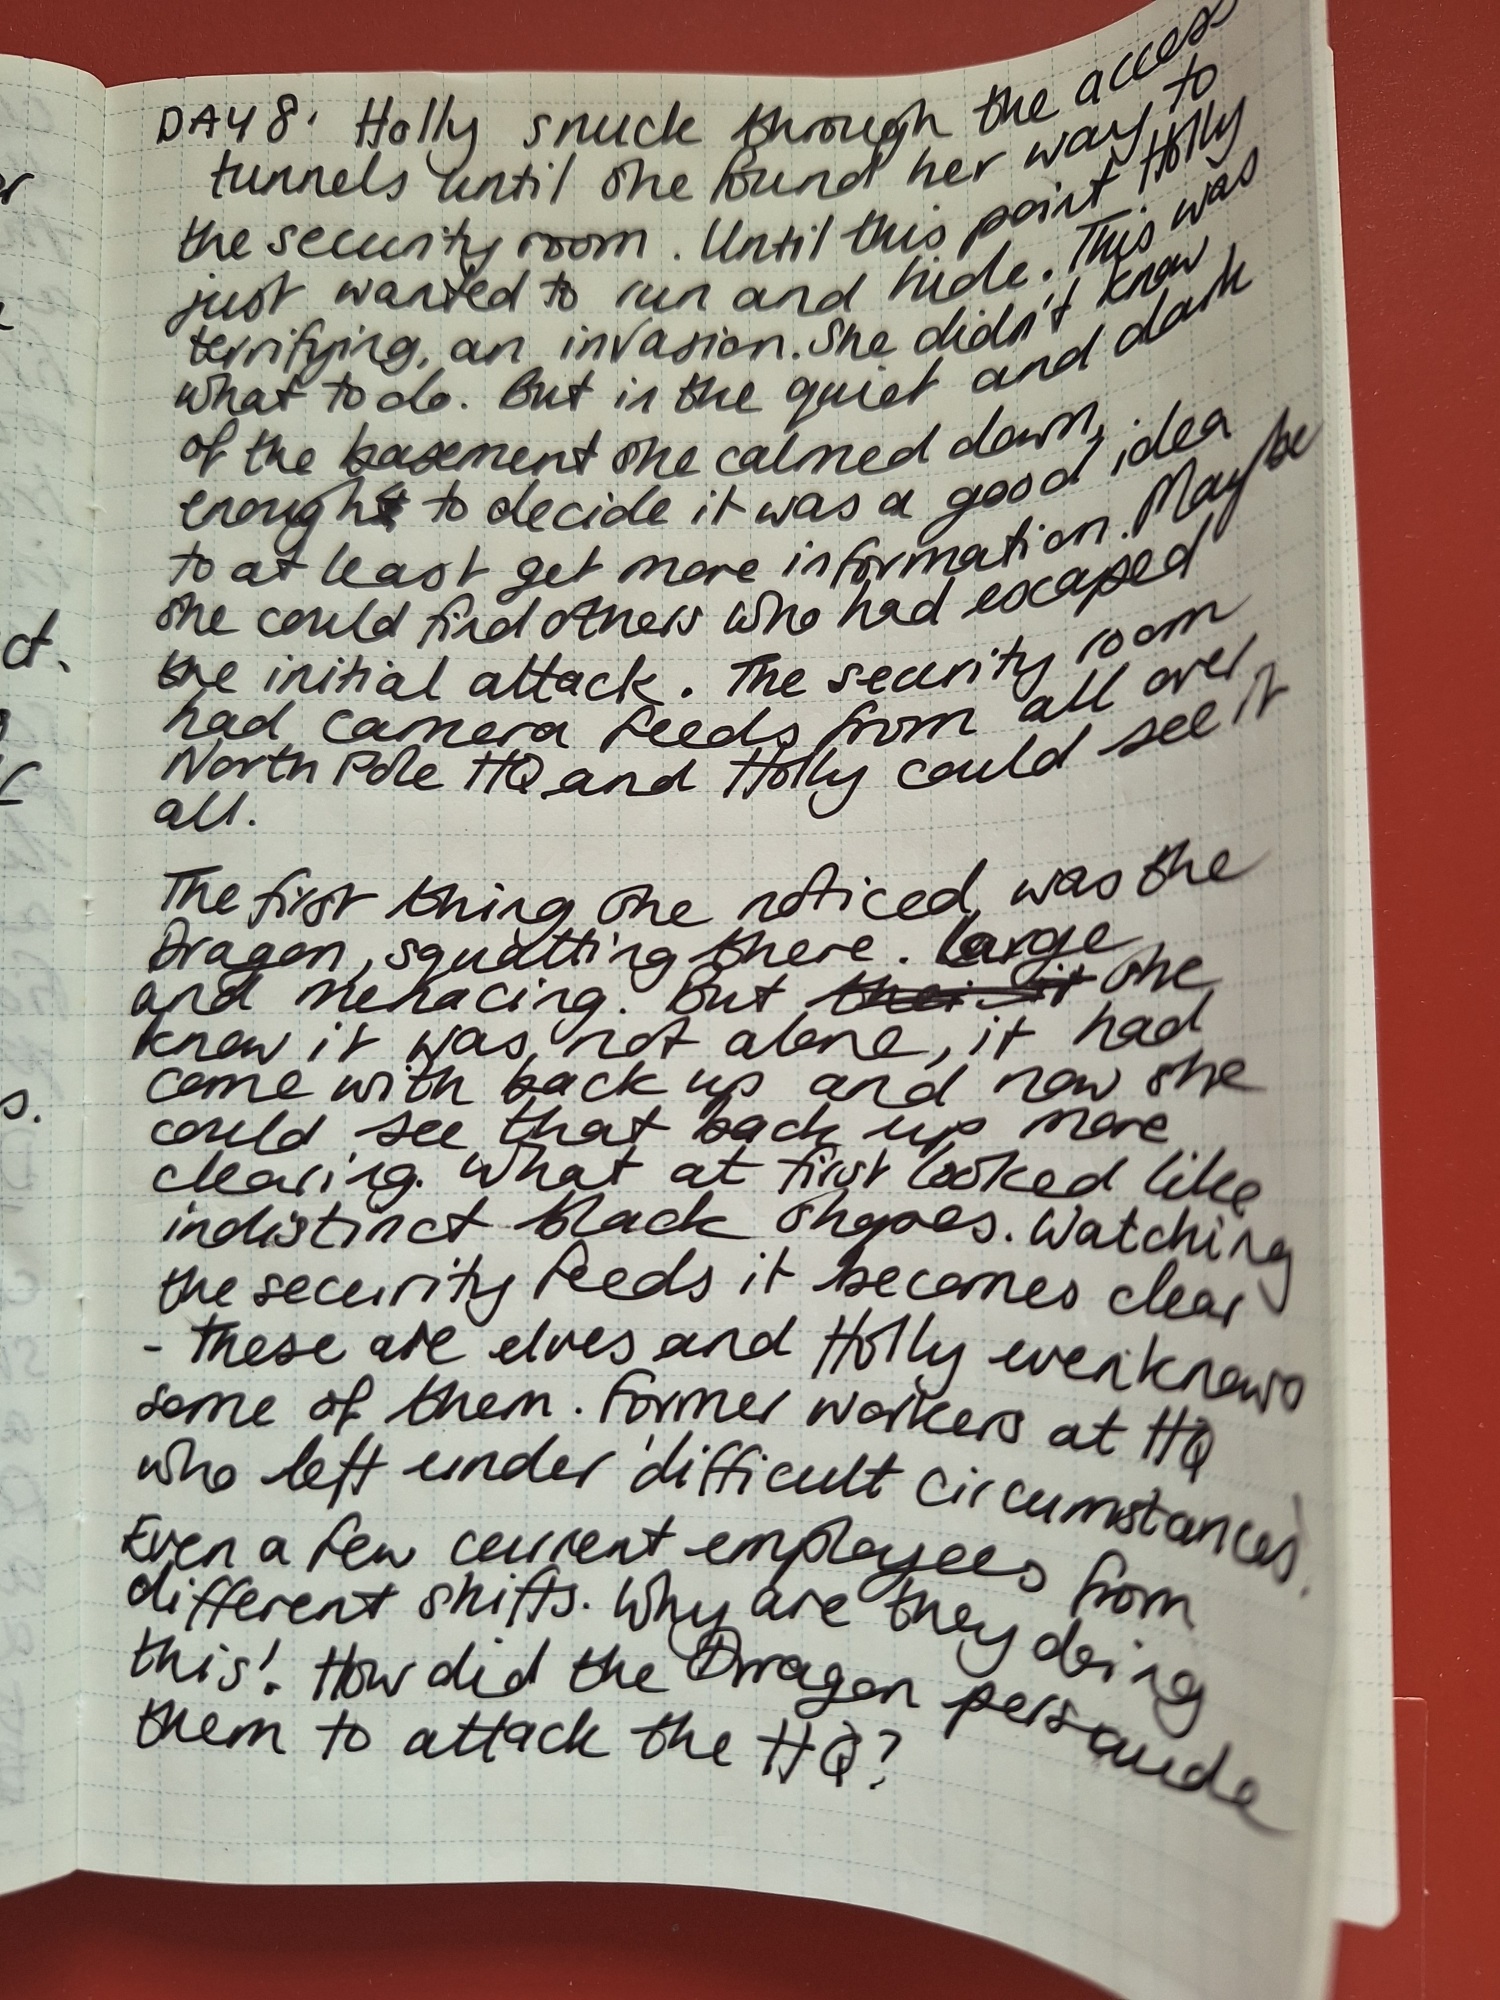 DAY 8. Holly snuck through the access
tunnels until she found her way to
the security room. Until this point Holly
just wanted to run and hide. This was
terrifying, an invasion. She didn't know
what to do. But in the quiet and dark
of the basement she calmed down,
enough to decide it was a good idea
to at least get more information. Maybe
she could find others who had escaped
the initial attack. The security room
had camera feeds from all over
North Pole HQ and Holly could see it
all.
The first thing she noticed was the
Dragon, squatting there. Large
and menacing. But she
knew it was not alone, it had
come with back up and now she
could see that back up more
clearing. What at first looked like
indistinct black shapes. Watching
the security feeds it becomes clear
- these are elves and Holly even knows
some of them. Former workers at HQ
who left under difficult circumstances.
Even a few current employees from
different shifts. Why are they doing
this! How did the Dragon persuade
them to attack the HQ?
ct.
s.